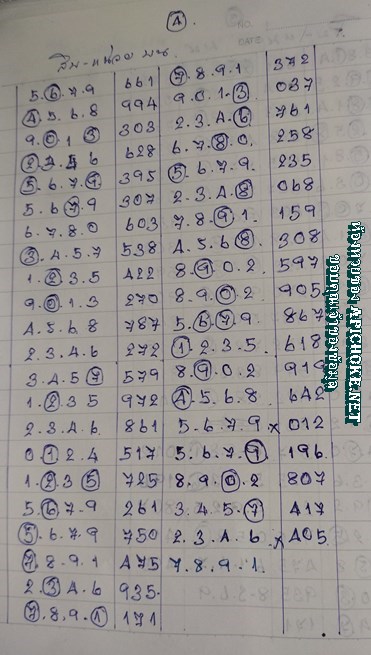 A.
สิบ-หน่วย บน.
5.6.7.9 661
4.5.6.8 994
9.0.1.3 303
2.3.4.6 628
5.6.7.9 395
5.6.7.9 307
6.7.8.0 603
3.4.5.7 538
1.2.3.5 422
9.0.1.3 270
4.5.6.8 787
2.3.4.6 272
3.4.5.7 579
1.2.3.5 972
2.3.4.6 861
0.1.2.4 517
1.2.3.5 725
5.6.7.9 261
5.6.7.9 750
7.8.9.1 475
2.3.4.6 935.
7.8.9.1 171
7.8.9.1 372
9.0.1.3 037
2.3.4.6 761
6.7.8.0. 258
5.6.7.9. 235
2.3.4.8 068
7.8.9.1. 159
4.5.6.8. 308
8.9.0.2. 597
8.9.0.2 905
5.6.7.9. 867
1.2.3.5 618
8.9.0.2 919
4.5.6.8 642
5.6.7.9x 012
5.6.7.9 196.
8.9.0.2 807
3.4.5.7 417
2.3.4.6.x 405
7.8.9.1.
APICHOKE.NET